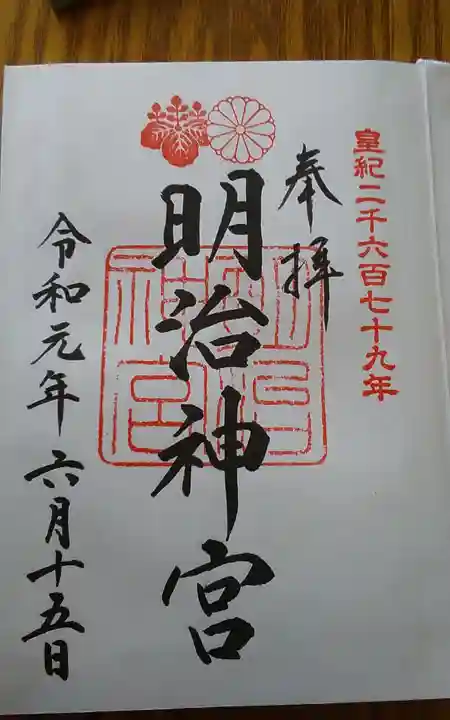 皇紀二千六百七十九年
奉拝
明治神宮
明治神宮
令和元年六月十五日